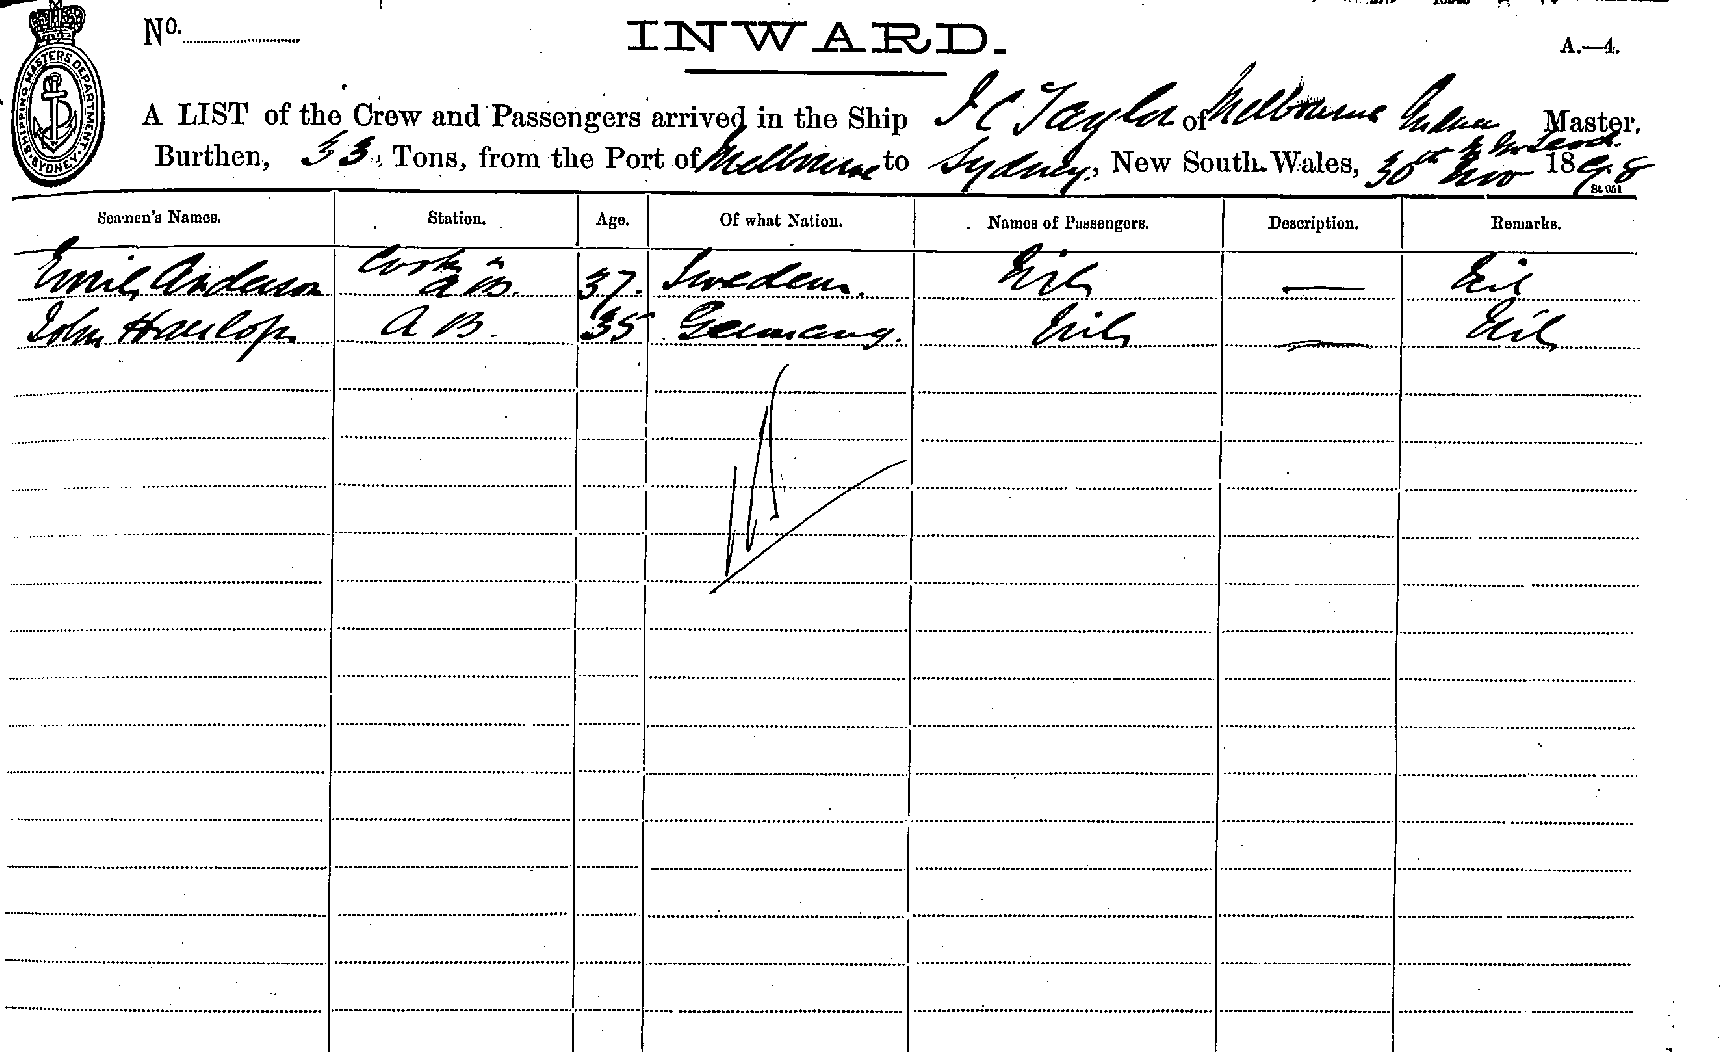 No.
INWARD.
A.—4.
SHIPPING MASTERS DEPARTMENT SYDNEY
A LIST of the Crew and Passengers arrived in the Ship J C Taylor of Melbourne Master,
Burthen, 33 Tons, from the Port of Melbourne to Sydney, New South Wales, 30th Nov 1898
Seamen's Names. Station. Age. Of what Nation. Names of Passengers. Description. Remarks.
Emil Anderson Cook & A B. 37. Sweden. Nil — Nil
John A B. 35 Germany. Nil — Nil